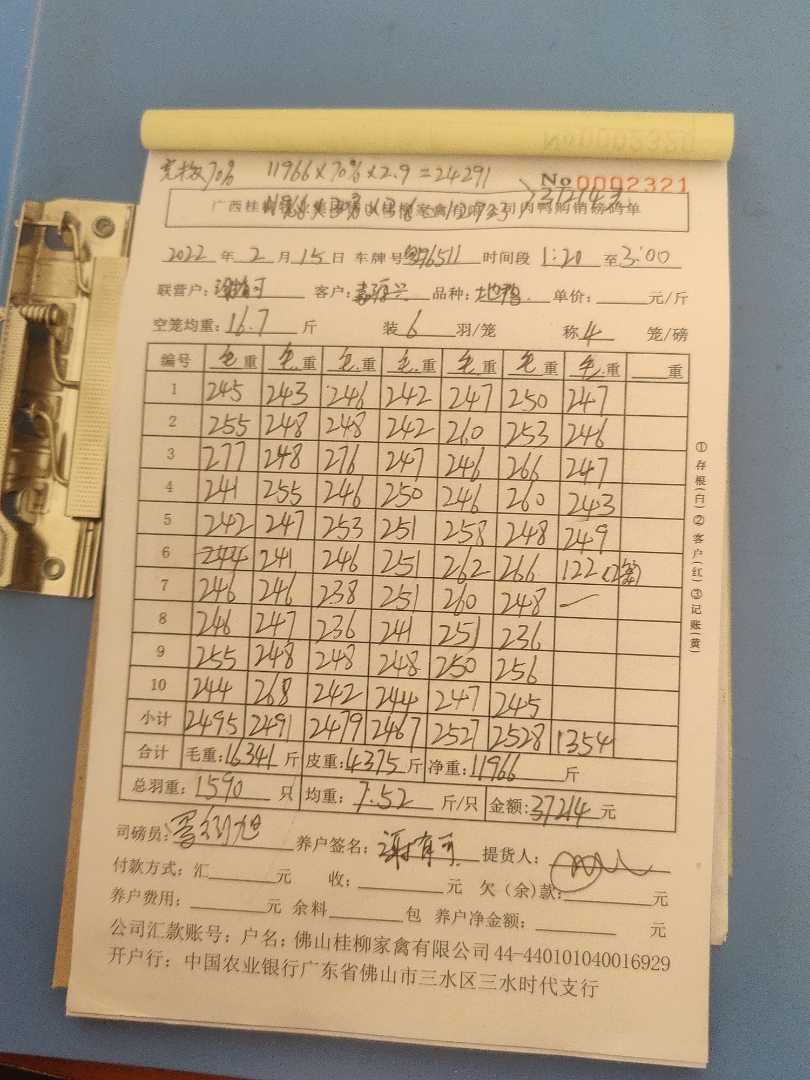 70% 11966×70%×2.9=24291
No 0002321
2022 年 2 月 15 日 车牌号 96511 时间段 1:20 至 3:00
联营户: 客户: 品种: 单价: 元/斤
空笼均重: 16.7 斤 装 6 羽/笼 称 4 笼/磅
编号 毛重 毛重 毛重 毛重 毛重 毛重 毛重 重
1 245 243 246 242 247 250 247
2 255 248 248 242 260 253 246
3 277 248 276 247 246 266 247
4 241 255 246 250 246 260 243
5 242 247 253 251 258 248 249
6 244 241 246 251 262 266 122
7 246 246 238 251 260 248 —
8 246 247 236 241 251 236
9 255 248 248 248 250 256
10 244 268 242 244 247 245
小计 2495 2491 2479 2467 2527 2528 1354
合计 毛重: 16341 斤 皮重: 4375 斤 净重: 11966 斤
总羽重: 1590 只 均重: 7.52 斤/只 金额: 37214 元
司磅员: 养户签名: 谢有可 提货人:
付款方式: 汇 元 收: 元 欠(余)款: 元
养户费用: 元 余料 包 养户净金额: 元
公司汇款账号: 户名: 佛山桂柳家禽有限公司 44-440101040016929
开户行: 中国农业银行广东省佛山市三水区三水时代支行
①存根(白)②客户(红)③记账(黄)